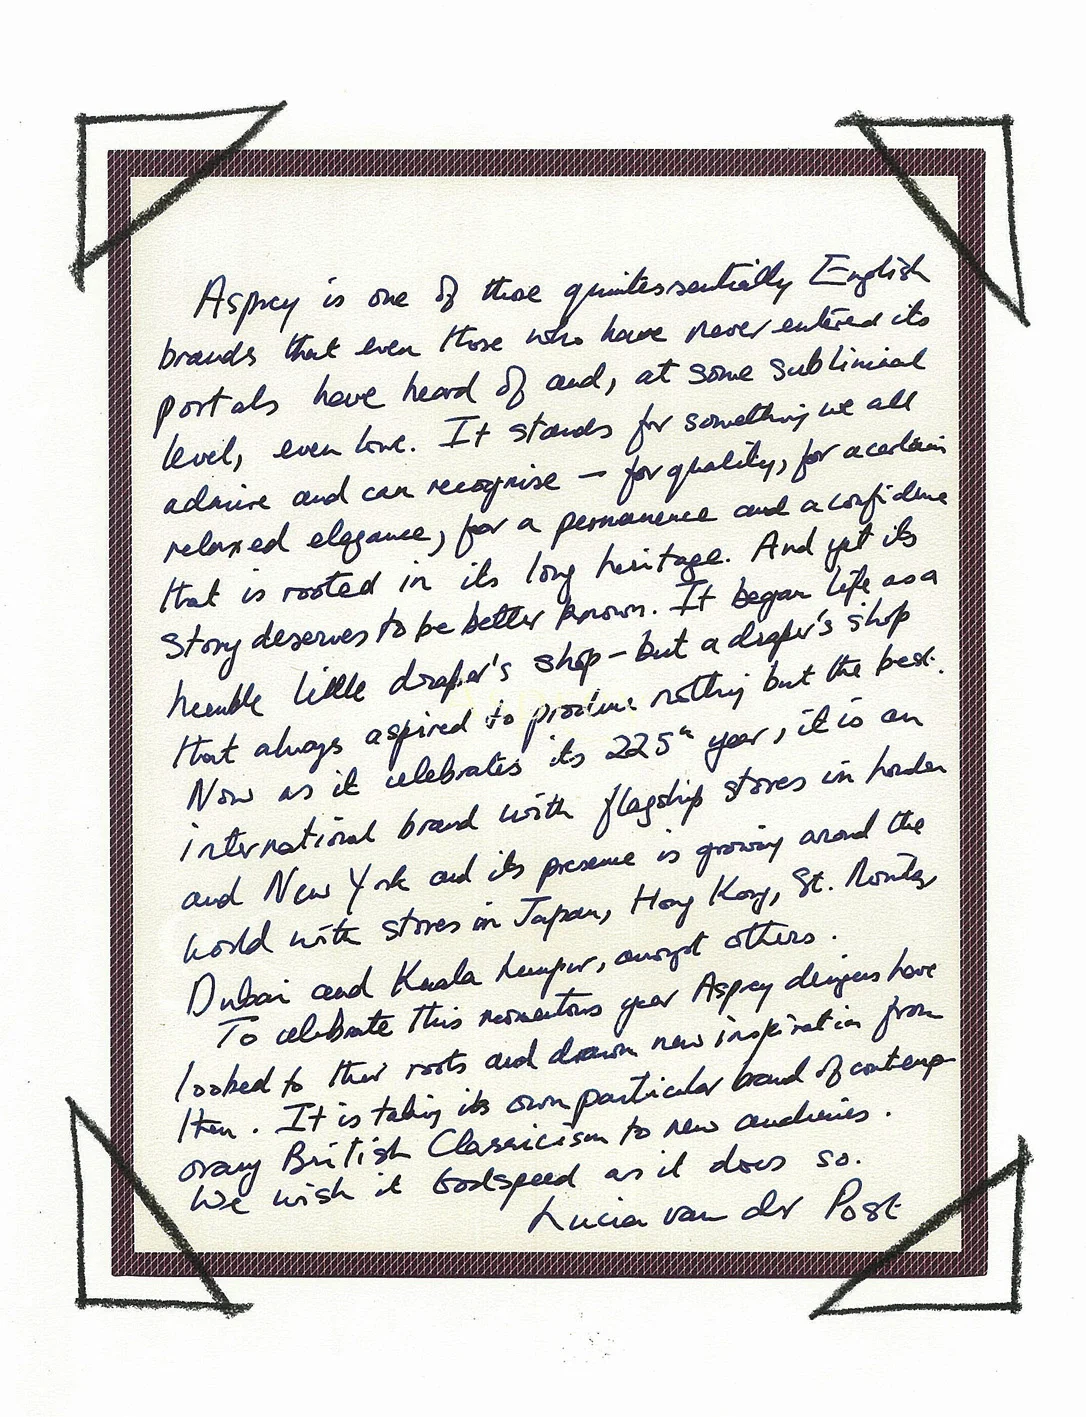 Asprey is one of those quintessentially English
brands that even those who have never entered its
portals have heard of and, at some subliminal
level, even love. It stands for something we all
admire and can recognise – for quality, for a certain
relaxed elegance, for a permanence and a confidence
that is rooted in its long heritage. And yet its
story deserves to be better known. It began life as a
humble little draper's shop – but a draper's shop
that always aspired to produce nothing but the best.
Now as it celebrates its 225th year, it is an
international brand with flagship stores in London
and New York and its presence is growing around the
world with stores in Japan, Hong Kong, St. Moritz,
Dubai and Kuala Lumpur, amongst others.
To celebrate this momentous year Asprey designers have
looked to their roots and drawn new inspiration from
them. It is taking its own particular brand of contemp-
orary British Classicism to new audiences.
We wish it Godspeed as it does so.
Lucia van der Post